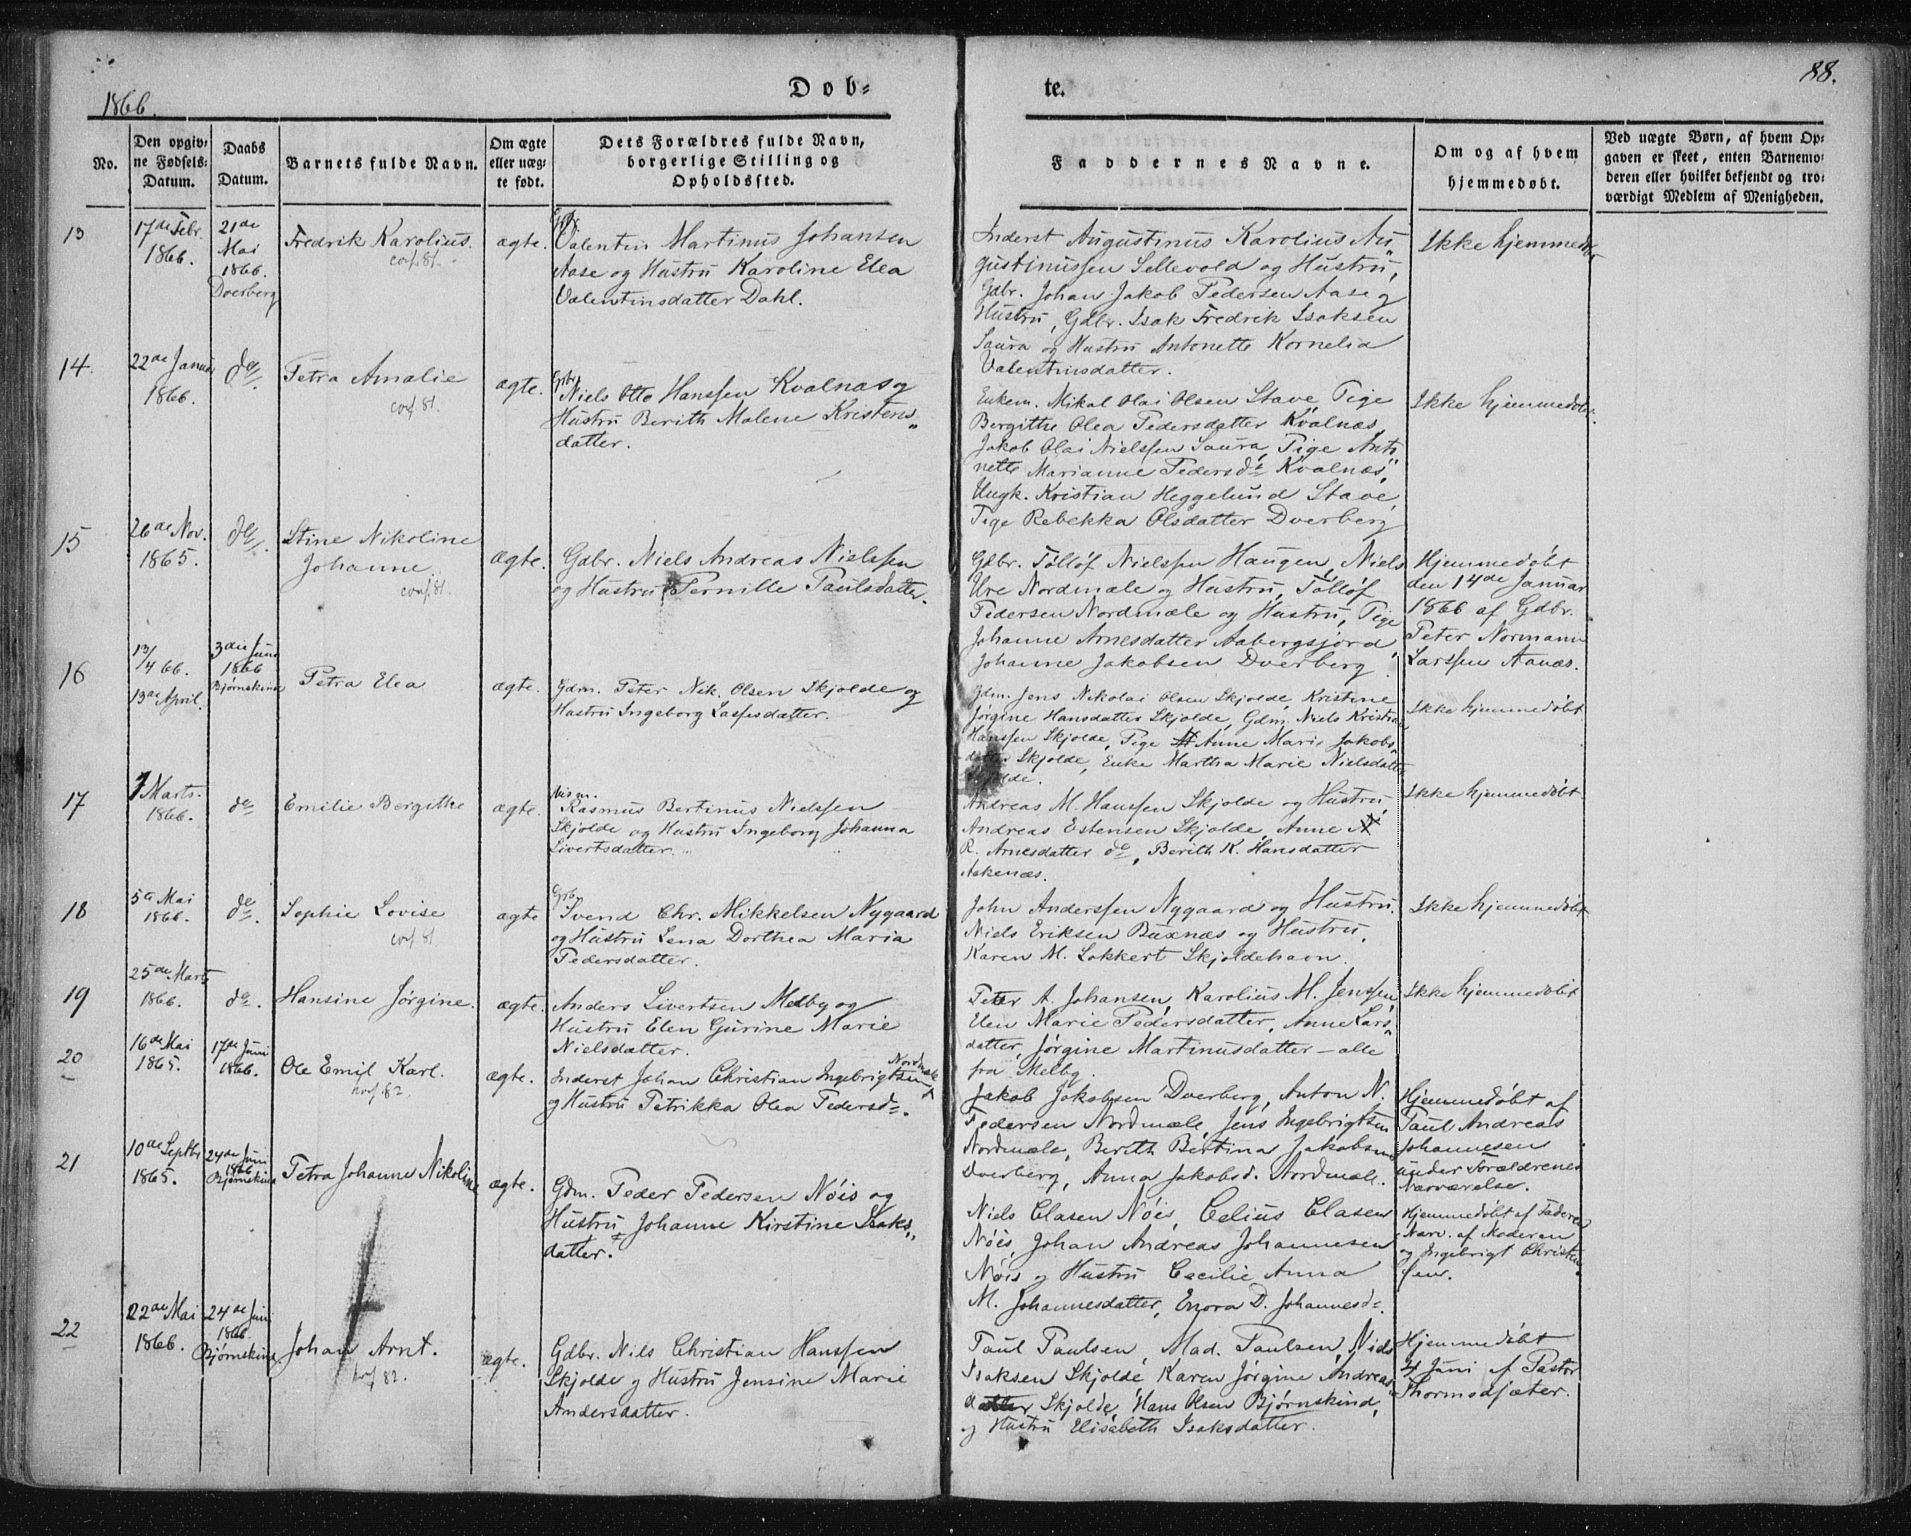 1866.
Døb-
te.
88.
No.
Den opgiv-
ne Fødsels-
Datum.
Daabs
Datum.
Barnets fulde Navn.
Om ægte
eller uæg-
te født.
Dets Forældres fulde Navn,
borgerlige Stilling og
Opholdssted.
Faddernes Navne.
Om og af hvem
hjemmedøbt.
Ved uægte Børn, af hvem Op-
gaven er skeet, enten Barnemo-
deren eller hvilket bekjendt og tro-
værdigt Medlem af Menigheden.
13
17de Febr.
1866.
21de
Mai
1866.
Dverberg
Fredrik Karolius.
conf. 81.
ægte.
Gdbr.
Valentin Martinus Johansen
Aase og Hustru Karoline Elea
Valentinsdatter Dahl.
Inderst Augustinus Karolius Au„
gustinussen Sellevold og Hustru,
Gdbr. Johan Jakob Pedersen Aase og
Hustru, Gdbr. Isak Fredrik Isaksen
Saura og Hustru Antonette Kornelia
Valentinsdatter.
Ikke hjemmedøbt
14.
22de Januar
1866.
do.
Petra Amalie
conf. 81.
ægte.
Gdbr.
Niels Otto Hanssen Kvalnæs og
Hustru Berith Malene Kristens„
datter.
Enkem. Mikal Olai Olsen Stave, Pige
Bergithe Olea Pedersdatter Kvalnæs,
Jakob Olai Nielssen Saura, Pige Anto
nette Marianne Pedersdr Kvalnæs,
Ungk. Kristian Heggelund Stave,
Pige Rebekka Olsdatter Dverberg
Ikke hjemmedøbt.
15
26de Nov.
1865.
do.
Stine Nikoline
Johanne.
conf. 81.
ægte.
Gdbr. Niels Andreas Nielssen
og Hustru Pernille Paulsdatter.
Gdbr. Tølløf Nielssen Haugen, Niels
Ure Nordmæle og Hustru, Tølløf
Pedersen Nordmæle og Hustru, Pige
Johanne Arnesdatter Aabergsjord,
Johanne Jakobsen Dverberg
Hjemmedøbt
den 14de Januar
1866 af Gdbr.
Peter Normann
Larssen Aanæs.
16
13/4 66.
13de April.
3die Juni
1866
Bjørnskind
Petra Elea
ægte.
Gdm. Peter Nik. Olsen Skjolde og
Hustru Ingeborg Lassesdatter.
Gdm. Jens Nikolai Olsen Skjolde, Kristine
Jørgine Hansdatter Skjolde, Gdm. Niels Kristian
Hanssen Skjolde, Pige Anne Marie Jakobs-
datter Skjolde, Enke Martha Marie Nielsdatter
Skjolde.
Ikke hjemmedøbt
17
7 Marts
1866.
do
Emilie Bergithe
ægte.
Husm.
Rasmus Bertinus Nielssen
Skjolde og Hustru Ingeborg Johanna
Sivertsdatter.
Andreas M. Hanssen Skjolde og Hustru,
Andreas Estensen Skjolde, Anne
R. Arnesdatter do, Berith K. Hansdatter
Aakenæs.
Ikke hjemmedøbt
18
5te Mai
1866.
do.
Sophie Lovise
conf. 81
ægte
Gdbr.
Svend Chr. Mikkelsen Nygaard
og Hustru Lena Dorthea Maria
Pedersdatter.
John Anderssen Nygaard og Hustru.
Niels Eriksen Buxnæs og Hustru,
Karen M. Lokkert Skjoldehavn.
Ikke hjemmedøbt
19
25de Marts
1866.
do.
Hansine Jørgine.
ægte.
Anders Sivertsen Melby og
Hustru Elen Gurine Marie
Nielsdatter.
Peter A. Johansen, Karolius M. Jenssen,
Elen Marie Pedersdatter, Anne Lars„
datter, Jørgine Martinusdatter – alle
fra Melby.
Ikke hjemmedøbt
20
16de Mai
1865.
17de Juni
1866.
Ole Emil Karl.
konf 82.
ægte.
Inderst Johan Christian Ingebrigtsen Nordmæle
og Hustru Petrikka Olea Pedersdr.
Jakob Jakobsen Dverberg, Anton N.
Pedersen Nordmæle, Jens Ingebrigtsen
Nordmæle, Berith Bertina Jakobsen
Dverberg, Anna Jakobsd. Nordmæle.
Hjemmedøbt af
Paul Andreas
Johannesen
under Forældrenes
Nærværelse.
21
10de Septbr
1865.
24de Juni
1866.
Bjørnskind
Petra Johanne Nikoline
ægte.
Gdm. Peder Pedersen Nöis og
Hustru Johanne Kirstine Isaks„
datter.
Niels Clasen Nöis, Celius Clasen
Nöis, Johan Andreas Johannesen
Nöis og Hustru Cecilie Anna
M. Johannesdatter, Enora D. Johannesdr.
Hjemmedøbt af Faderen
i Nærv. af Moderen
og Ingebrigt Christen
sen.
22
22de Mai
1866.
24de Juni
1866.
Bjørnskind
Johan Arnt.
konf 82.
ægte.
Gdbr. Nils Christian Hanssen
Skjolde og Hustru Jensine Marie
Andersdatter.
Paul Paulsen, Mad. Paulsen, Niels
Isaksen Skjolde, Karen Jørgine Andreas-
datter Skjolde, Hans Olsen Bjørnskind,
og Hustru Elisabeth Isaksdatter.
Hjemmedøbt
4 Juni af Pastor
Thormodsæter.